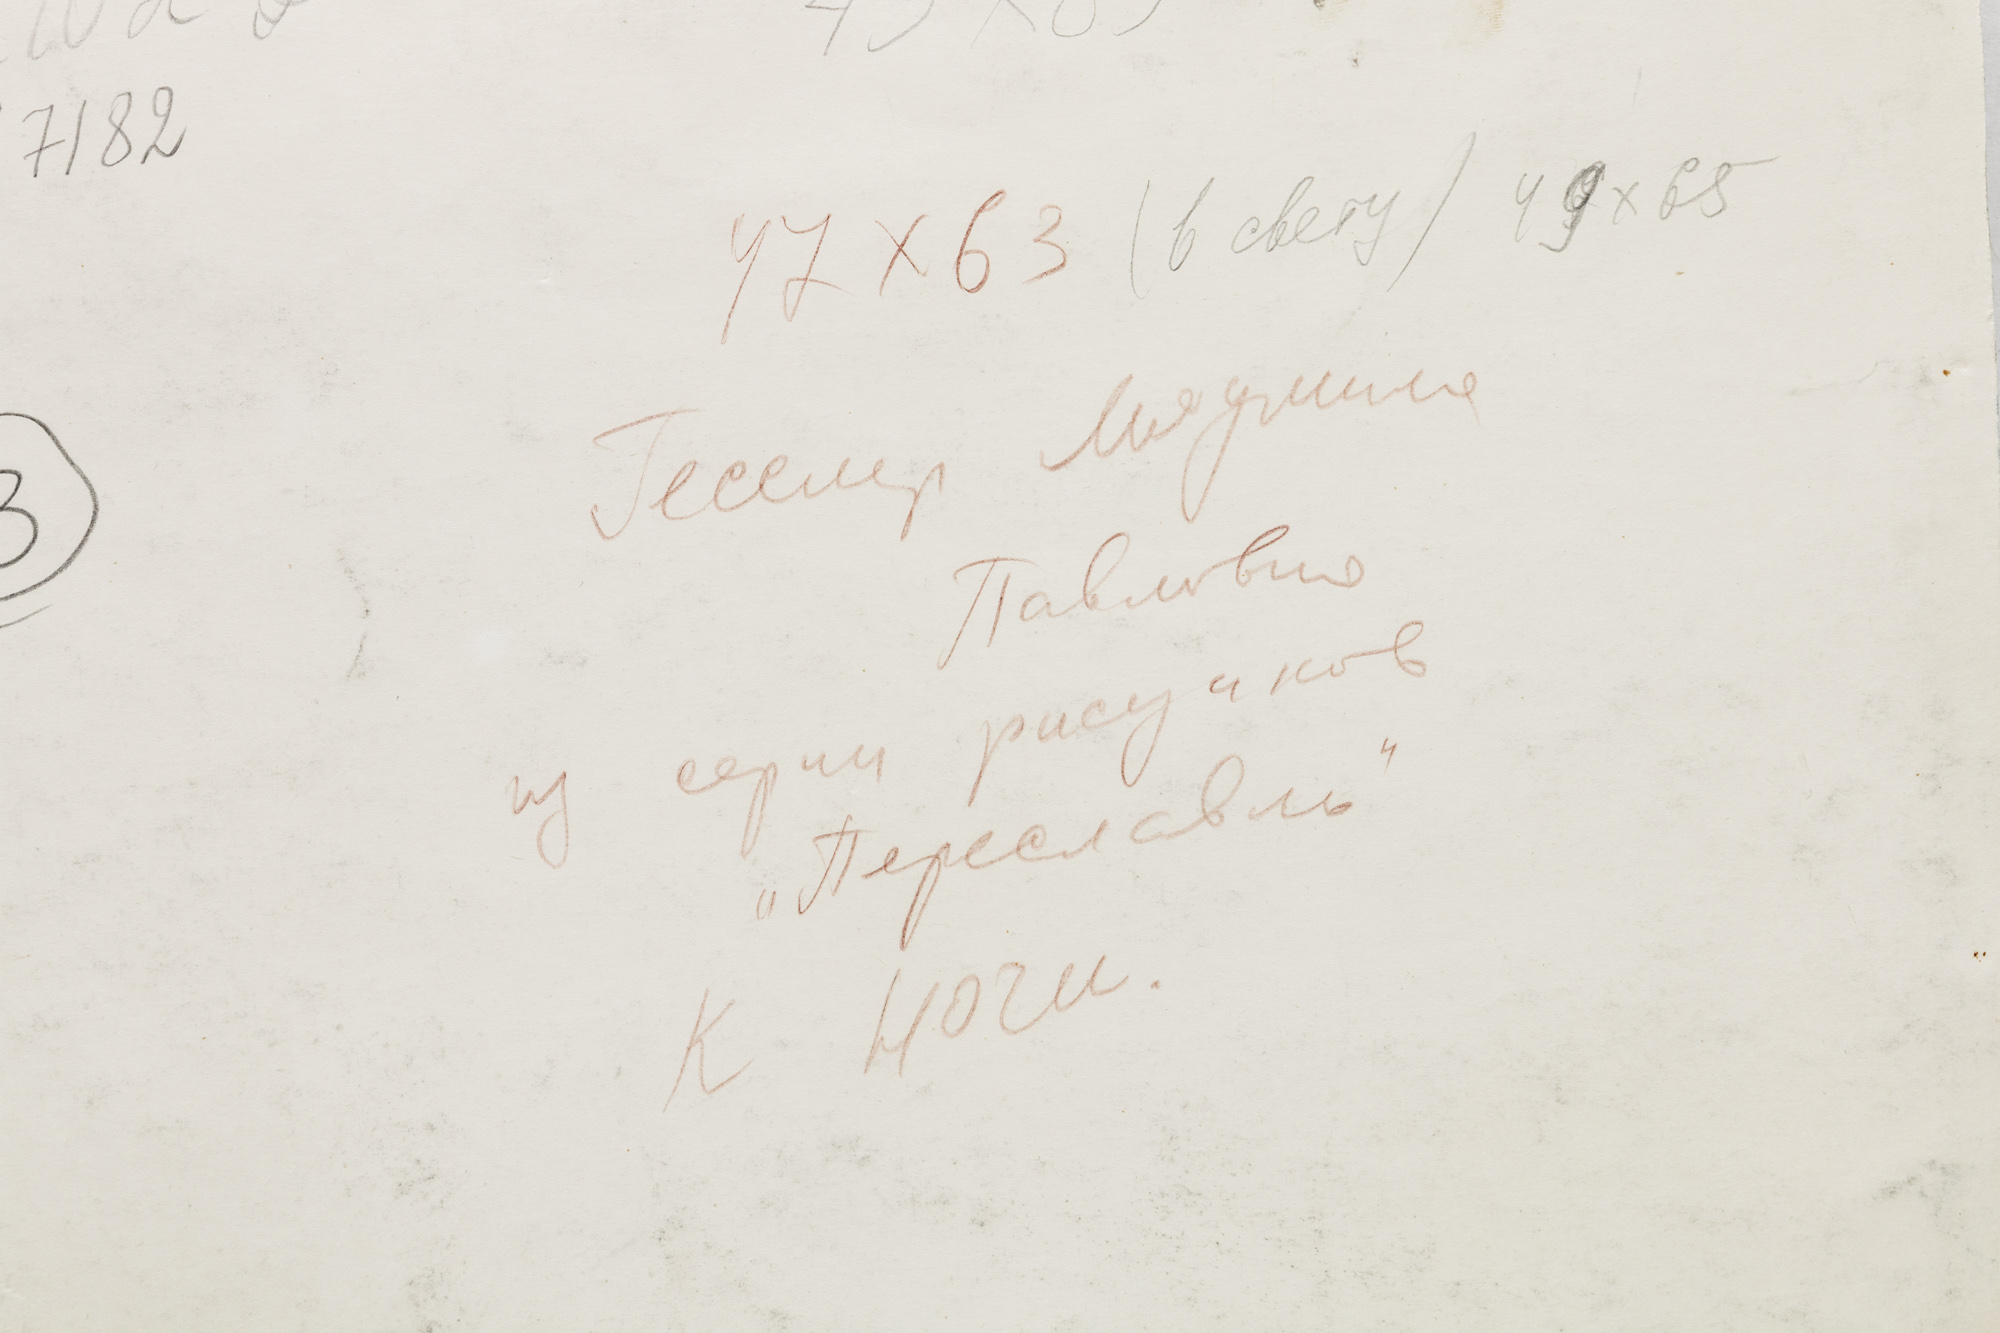 7182
47 х 63 (в свету) 49 х 65
3
Гесслер Людмила
Павловна
из серии рисунков
"Переславль"
К ночи.